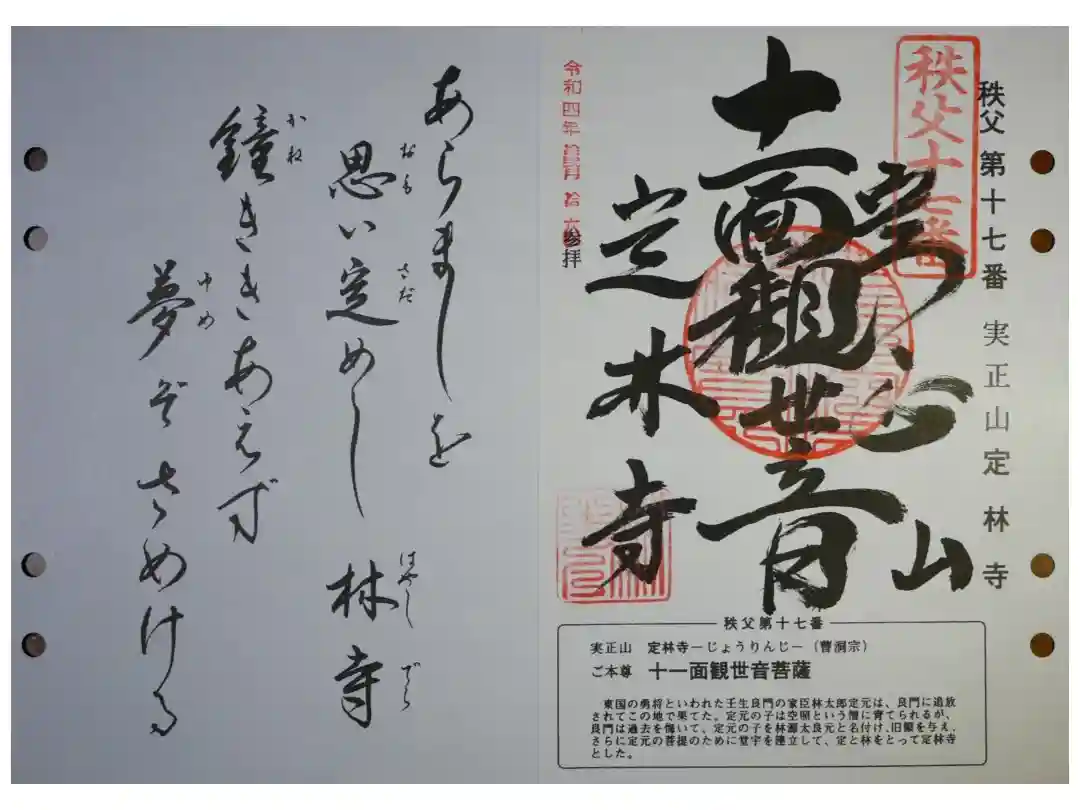 秩父第十七番 実正山定林寺
秩父十七番
実正山
十一面観世音
定林寺
令和四年 月 拾 参拝
秩父第十七番
実正山 定林寺－じょうりんじ－（曹洞宗）
ご本尊 十一面観世音菩薩
東国の勇将といわれた壬生良門の家臣林太郎定元は、良門に追放
されてこの地で果てた。定元の子は空照という僧に育てられるが、
良門は過去を悔いて、定元の子を林源太良元と名付け、旧領を与え、
さらに定元の菩提のために堂宇を建立して、定と林をとって定林寺
とした。
あらましを
思い定めし 林寺
おも さだ はやし でら
鐘ききあえず
かね
夢ぞさめける
ゆめ